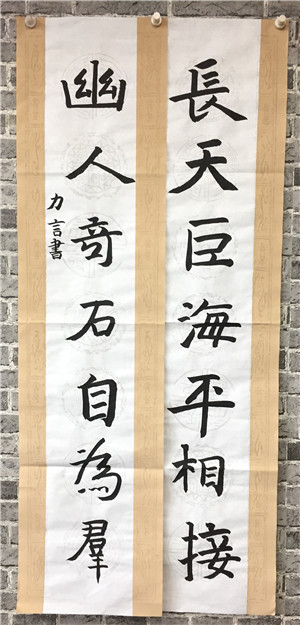 長天巨海平相接
幽人奇石自為羣
力言書